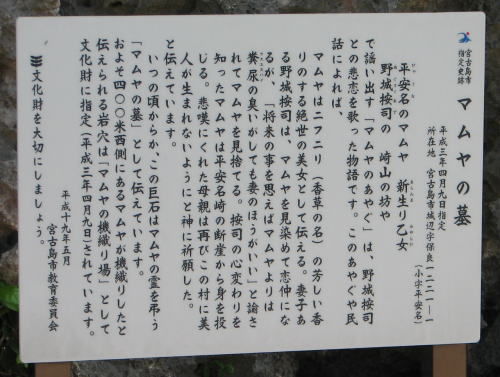 宮古島市
指定史跡
マムヤの墓
平成三年四月九日指定
所在地 宮古島市城辺字保良一二二一―一
(小字平安名)
平安名のマムヤ 新生り乙女
野城按司の 崎山の坊や
で謡い出す「マムヤのあやぐ」は、野城按司
との悲恋を歌った物語です。このあやぐや民
話によれば、
マムヤはニフニリ(香草の名)の芳しい香
りのする絶世の美女として伝える。妻子あ
る野城按司は、マムヤを見染めて恋仲にな
るが、「将来の事を思えばマムヤよりは
糞尿の臭いがしても妻のほうがいい」と諭さ
れてマムヤを見捨てる。按司の心変わりを
知ったマムヤは平安名崎の断崖から身を投
じる。悲嘆にくれた母親は再びこの村に美
人が生まれないようにと神に祈願した。
と伝えています。
いつの頃からか、この巨石はマムヤの霊を弔う
「マムヤの墓」として伝えています。
およそ四〇〇米西側にあるマムヤが機織りしたと
伝えられる岩穴は「マムヤの機織り場」として
文化財に指定(平成三年四月九日)されています。
文化財を大切にしましょう。
平成十九年五月
宮古島市教育委員会